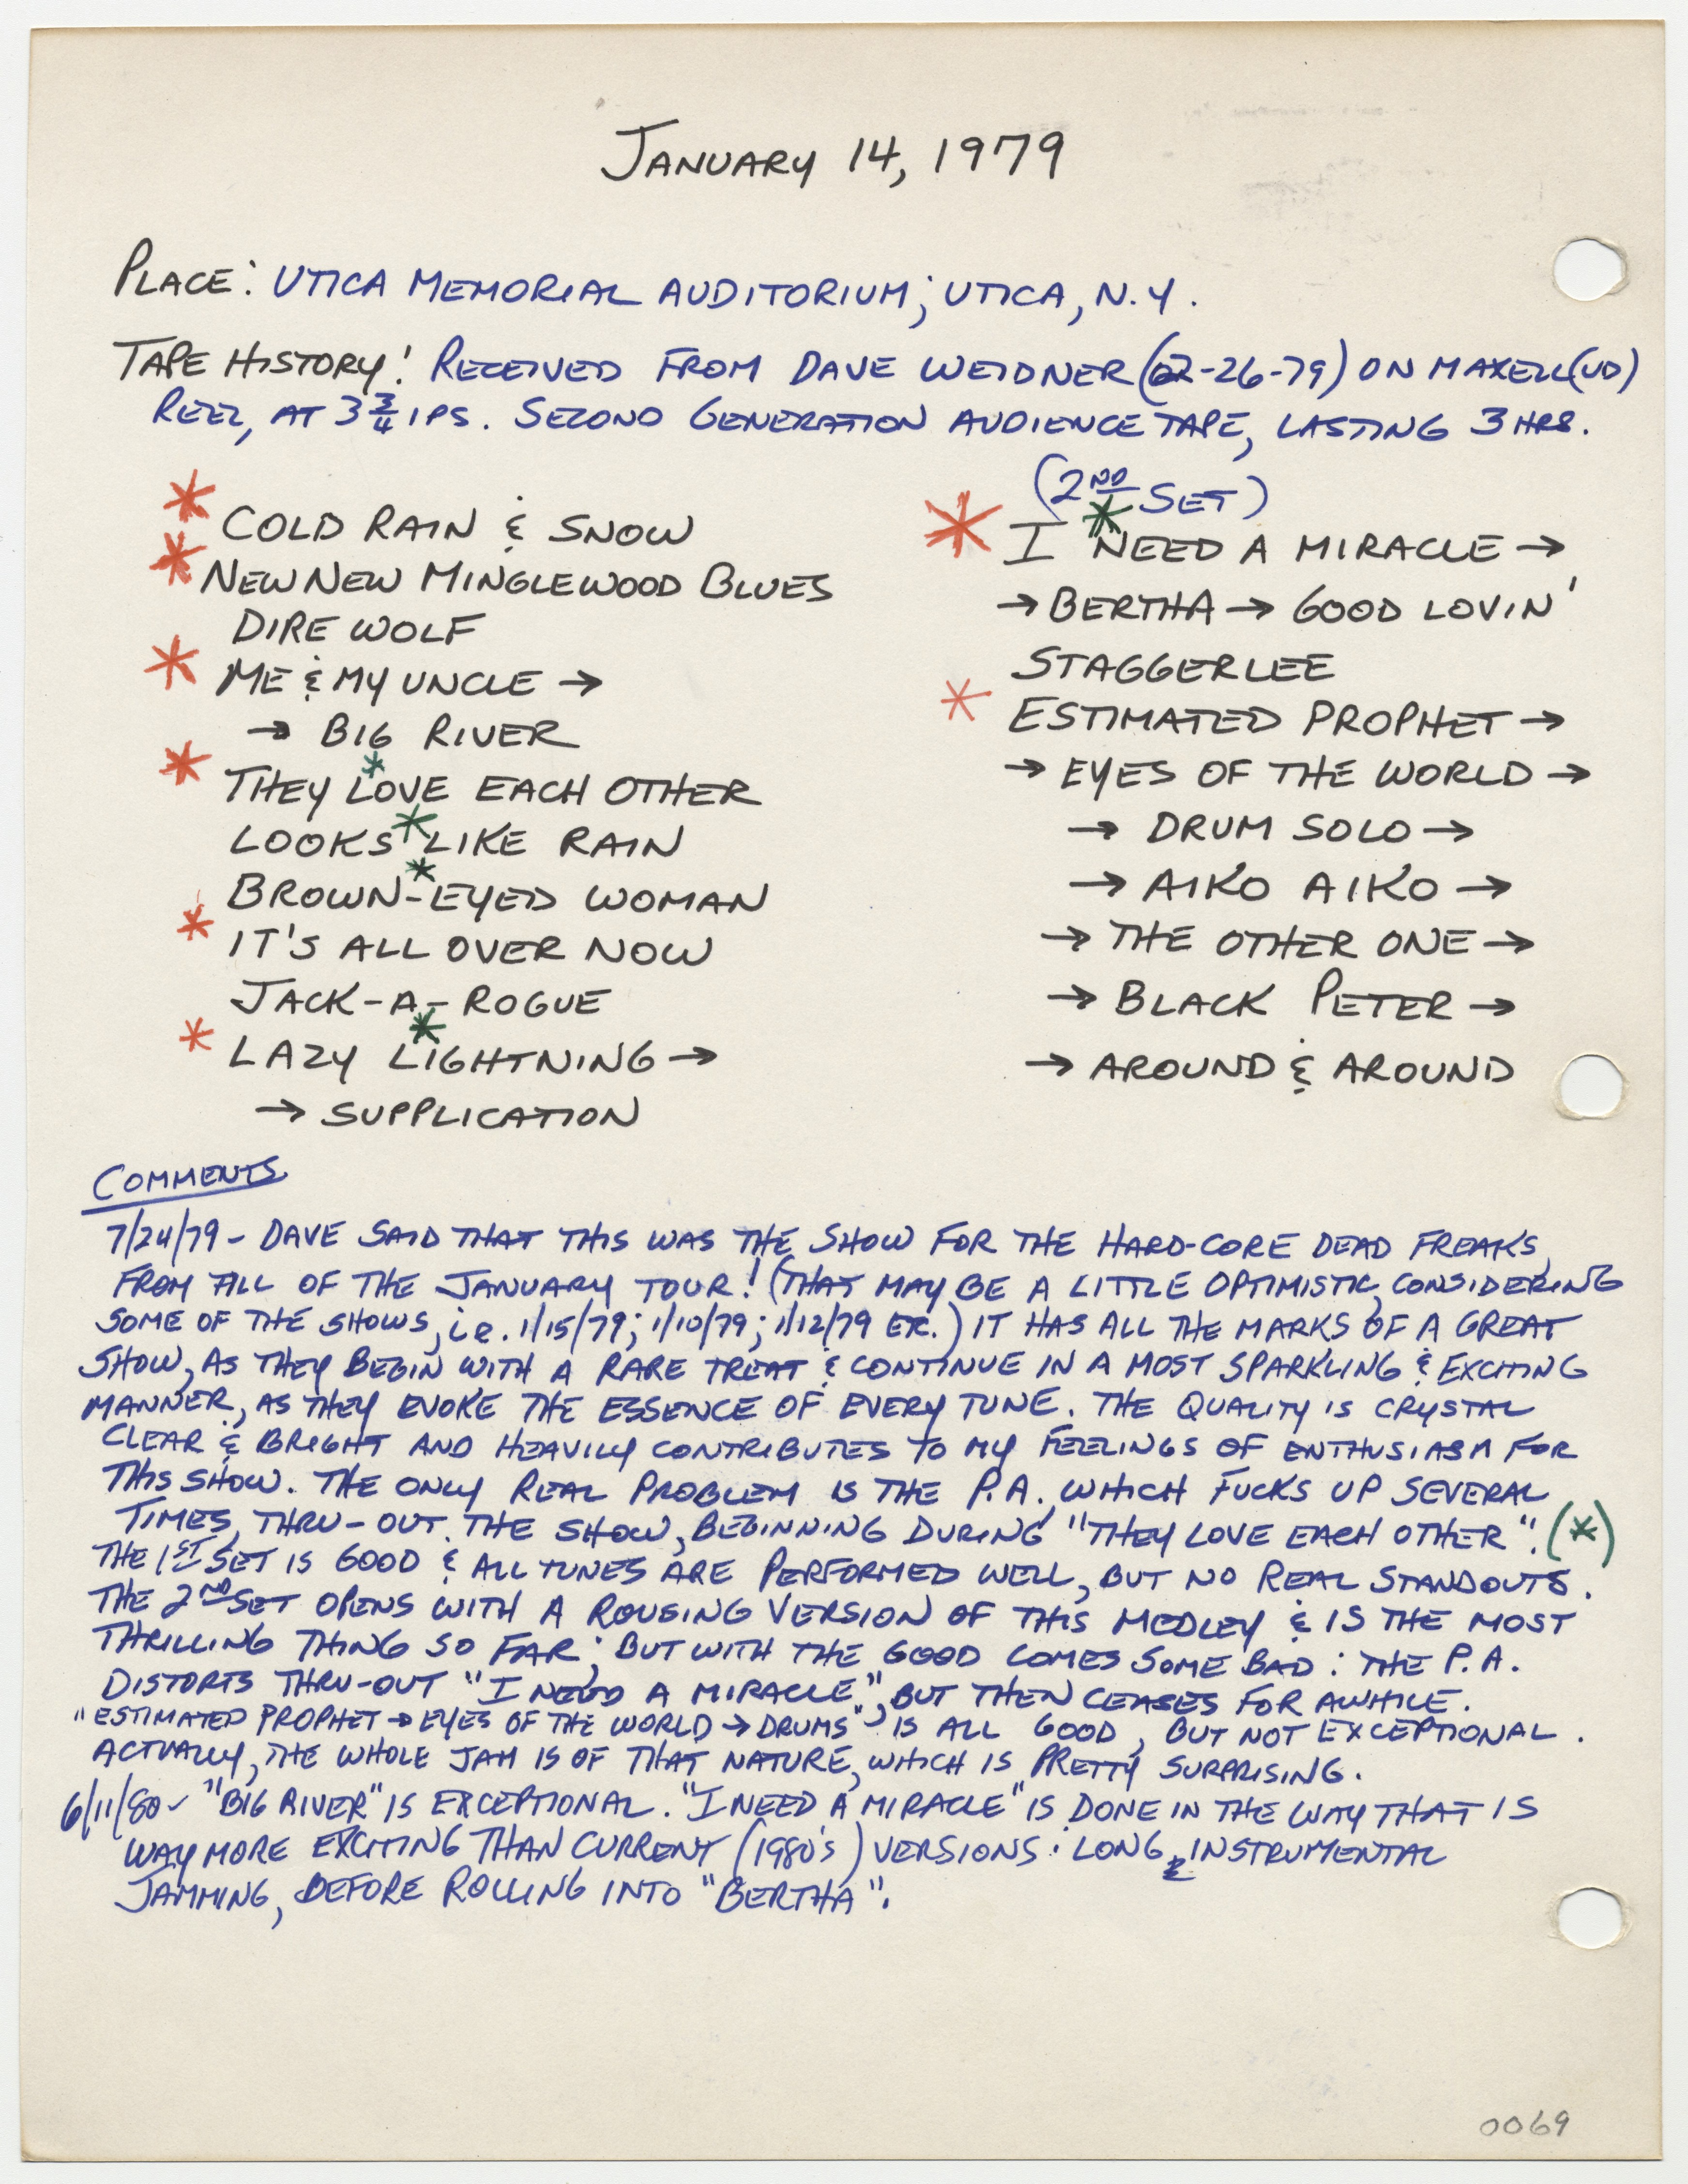 JANUARY 14, 1979
PLACE: UTICA MEMORIAL AUDITORIUM; UTICA, N.Y.
TAPE HISTORY: RECEIVED FROM DAVE WEIDNER (02-26-79) ON MAXELL (UD)
REEL, AT 3 3/4 IPS. SECOND GENERATION AUDIENCE TAPE, LASTING 3 HRS.
* COLD RAIN & SNOW
* NEW NEW MINGLEWOOD BLUES
DIRE WOLF
* ME & MY UNCLE →
→ BIG RIVER
* THEY LOVE EACH OTHER
LOOKS * LIKE RAIN
BROWN-EYED WOMAN
* IT'S ALL OVER NOW
JACK-A-ROGUE
* LAZY LIGHTNING →
→ SUPPLICATION
(2ND SET)
* I NEED A MIRACLE →
→ BERTHA → GOOD LOVIN'
STAGGERLEE
* ESTIMATED PROPHET →
→ EYES OF THE WORLD →
→ DRUM SOLO →
→ AIKO AIKO →
→ THE OTHER ONE →
→ BLACK PETER →
→ AROUND & AROUND
COMMENTS
7/24/79 - DAVE SAID THAT THIS WAS THE SHOW FOR THE HARD-CORE DEAD FREAKS,
FROM ALL OF THE JANUARY TOUR! (THAT MAY BE A LITTLE OPTIMISTIC, CONSIDERING
SOME OF THE SHOWS, i.e. 1/15/79; 1/10/79; 1/12/79 ETC.) IT HAS ALL THE MARKS OF A GREAT
SHOW, AS THEY BEGIN WITH A RARE TREAT & CONTINUE IN A MOST SPARKLING & EXCITING
MANNER, AS THEY EVOKE THE ESSENCE OF EVERY TUNE. THE QUALITY IS CRYSTAL
CLEAR & BRIGHT AND HEAVILY CONTRIBUTES TO MY FEELINGS OF ENTHUSIASM FOR
THIS SHOW. THE ONLY REAL PROBLEM IS THE P.A., WHICH FUCKS UP SEVERAL
TIMES, THRU-OUT THE SHOW, BEGINNING DURING "THEY LOVE EACH OTHER". (*)
THE 1ST SET IS GOOD & ALL TUNES ARE PERFORMED WELL, BUT NO REAL STANDOUTS.
THE 2ND SET OPENS WITH A ROUSING VERSION OF THIS MEDLEY & IS THE MOST
THRILLING THING SO FAR; BUT WITH THE GOOD COMES SOME BAD: THE P.A.
DISTORTS THRU-OUT "I NEED A MIRACLE", BUT THEN CEASES FOR AWHILE.
"ESTIMATED PROPHET → EYES OF THE WORLD → DRUMS" IS ALL GOOD, BUT NOT EXCEPTIONAL.
ACTUALLY, THE WHOLE JAM IS OF THAT NATURE, WHICH IS PRETTY SURPRISING.
6/11/80 - "BIG RIVER" IS EXCEPTIONAL. "I NEED A MIRACLE" IS DONE IN THE WAY THAT IS
WAY MORE EXCITING THAN CURRENT (1980's) VERSIONS: LONG & INSTRUMENTAL
JAMMING, BEFORE ROLLING INTO "BERTHA".
0069